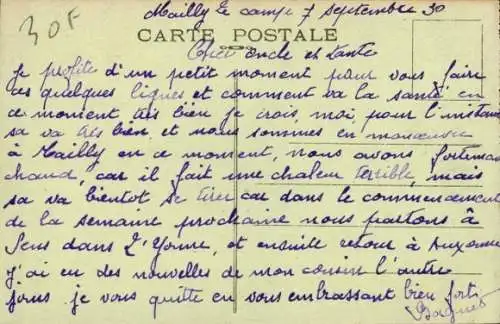 30F
Mailly le camp 7 septembre 30
CARTE POSTALE
Cher Oncle et tante
Je profite d'un petit moment pour vous faire
ces quelques lignes et comment va la santé en
ce moment très bien je crois, moi, pour l'instant
sa va très bien, et nous sommes en manoeuvre
à Mailly en ce moment, nous avons fortement
chaud, car il fait une chaleur terrible, mais
sa va bientot se tirer car dans le commencement
de la semaine prochaine nous partons à
Sens dans L'Yonne, et ensuite retour à Auxonne
J'ai eu des nouvelles de mon cousin l'autre
jour je vous quitte en vous embrassant bien fort